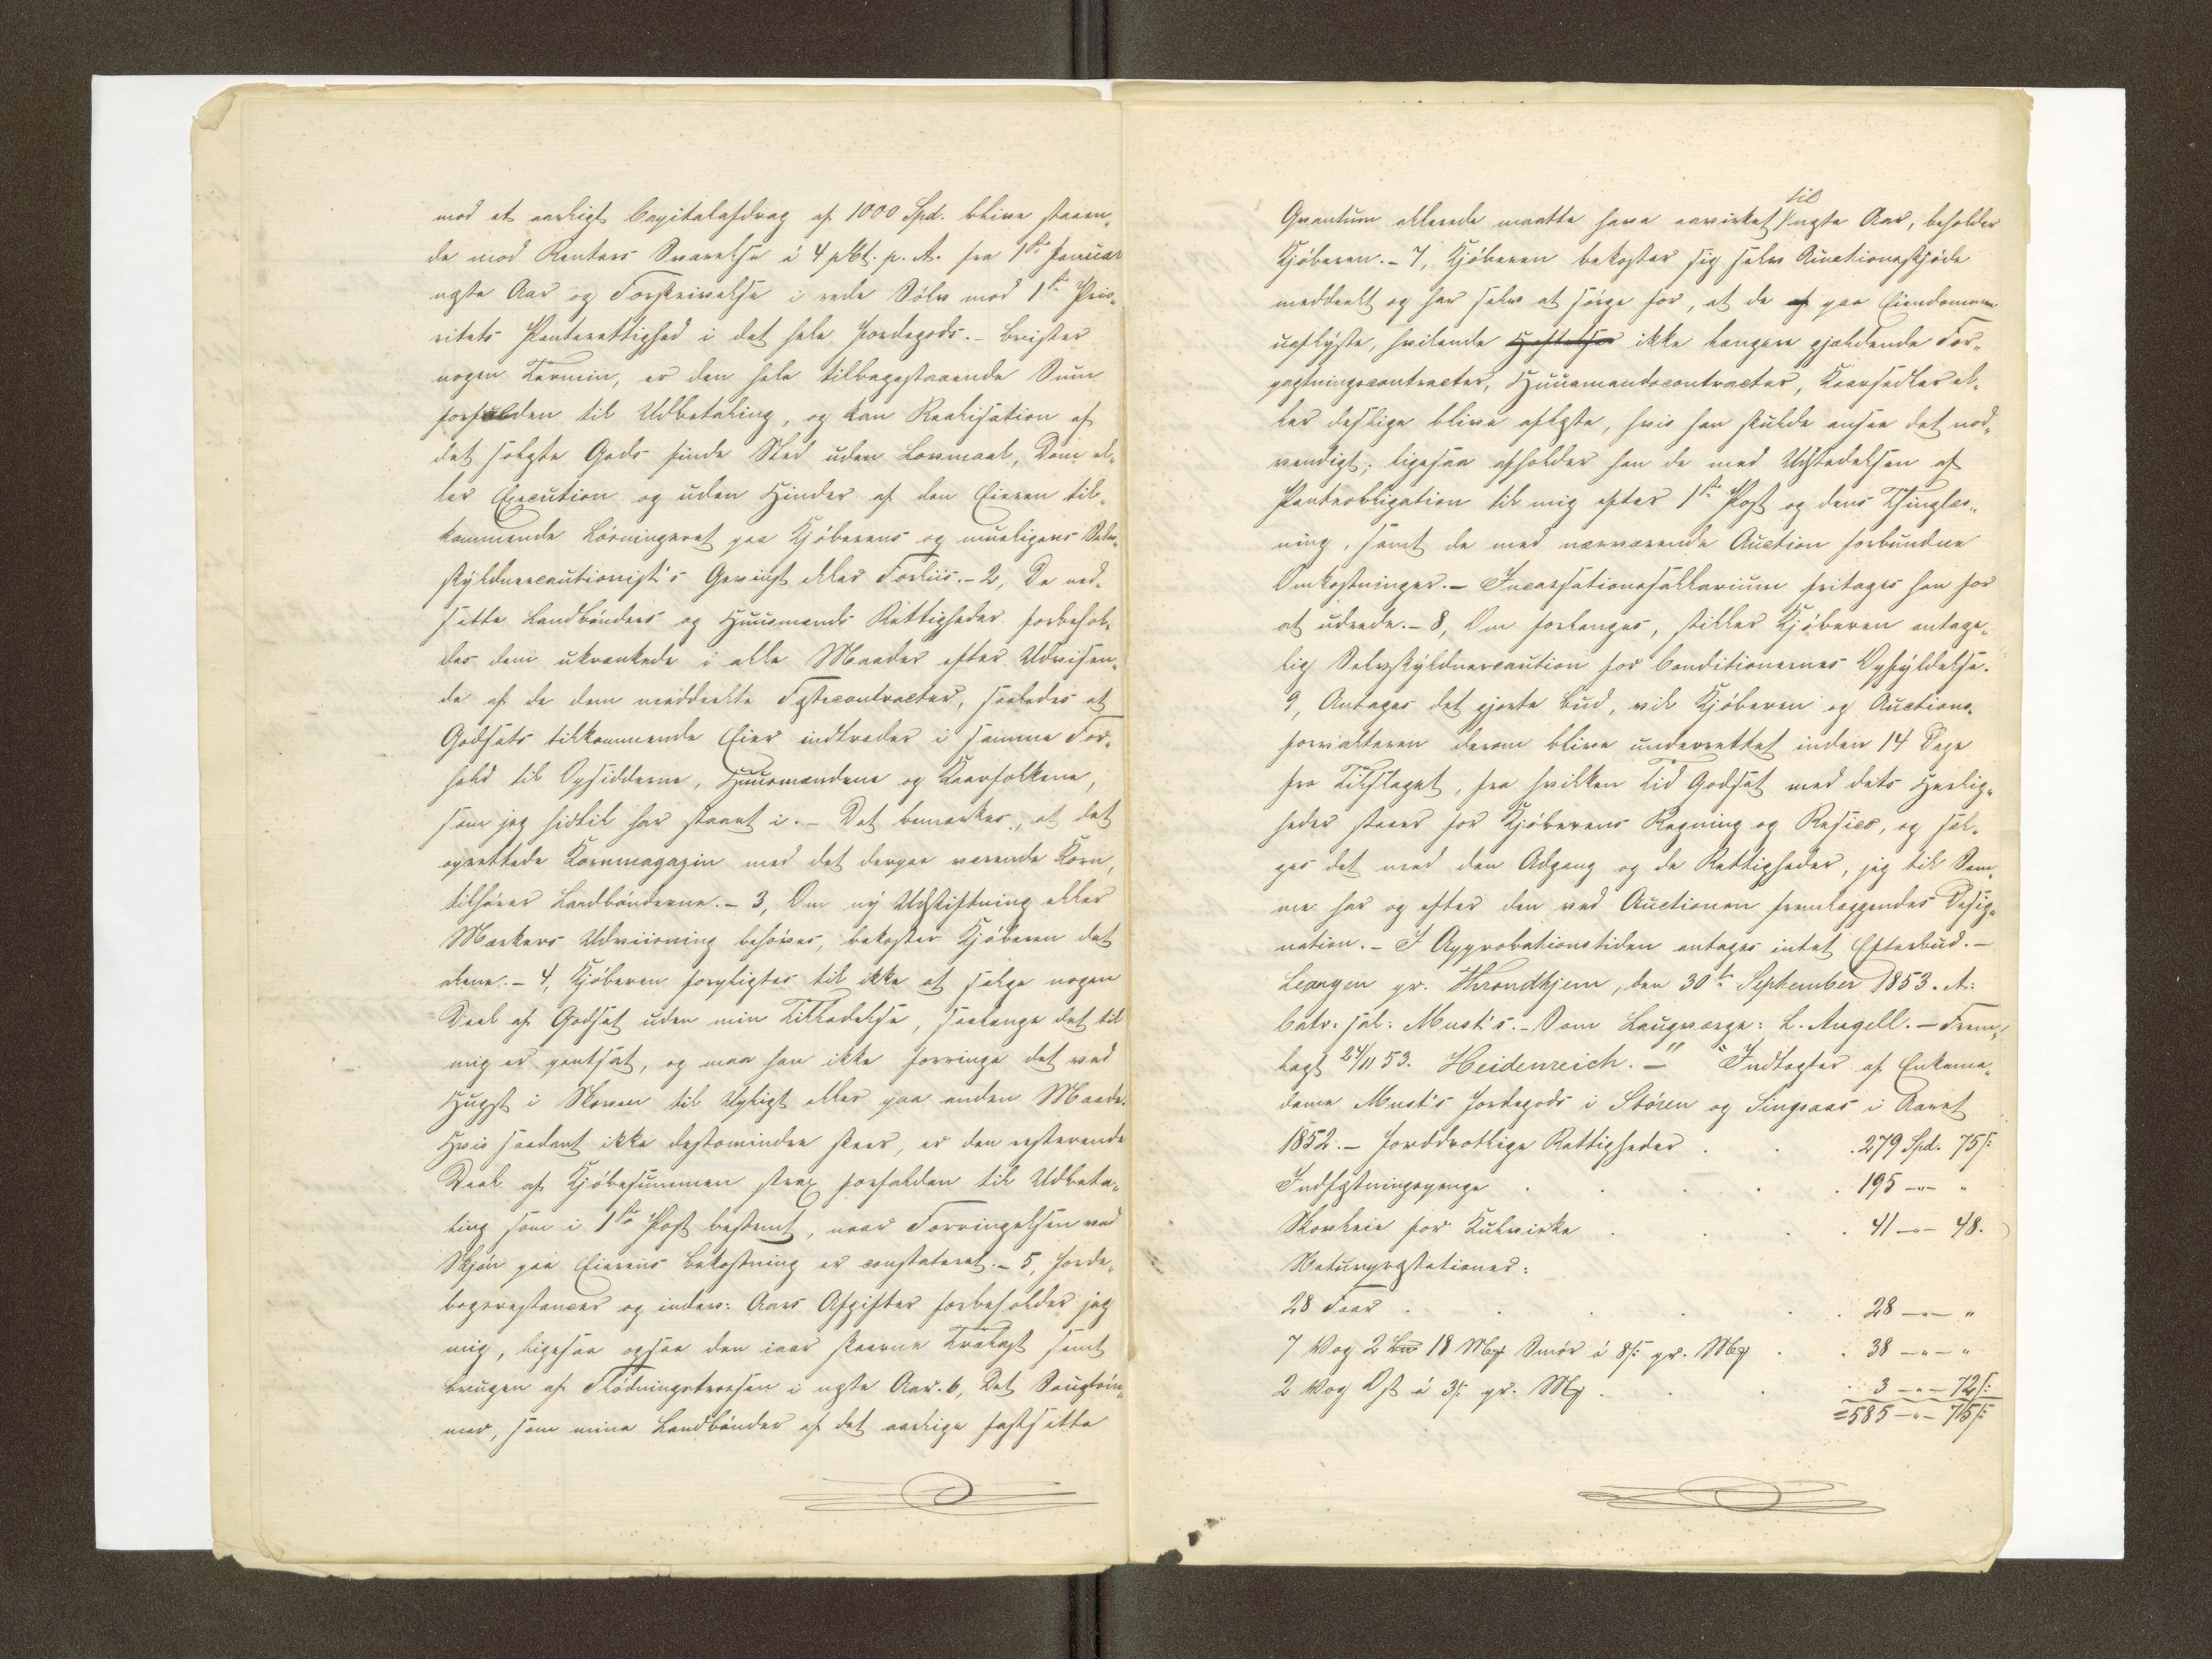 mod et aarligt Capitalafdrag af 1000 Spd. blive staaen„
de mod Renters Svarelse á 4 pCt. p. A. fra 1ste Januar
næste Aar og Forskrivelse i rede Sølv mod 1ste Prio„
ritets Panterettighed i det hele Jordegods. – Brister
nogen Termin, er den hele tilbagestaaende Sum
forfalden til Udbetaling, og kan Realisation af
det solgte Gods finde Sted uden Lovmaal, Dom el„
ler Execution og uden Hinder af den Eieren til„
kommende Løsningsret paa Kjøberens og mueligens Selv„
skyldnercautionist's Gevinst eller Forliis. – 2, De ved„
satte Landbønders og Huusmænds Rettigheder forbehol„
des dem ukrænkede i alle Maader efter Udvisen„
de af de dem meddeelte Fæstecontracter, saaledes at
Godsets tilkommende Eier indtræder i samme For„
hold til Opsidderne, Huusmændene og Kaarfolkene,
som jeg hidtil har staaet i. – Det bemærkes, at det
oprettede Kornmagazin med det derpaa værende Korn,
tilhører Landbønderne. – 3, Om ny Udskiftning eller
Mærkers Udviisning behøves, bekoster Kjøberen det
alene. – 4, Kjøberen forpligtes til ikke at sælge nogen
Deel af Godset uden min Tilladelse, saalænge det til
mig er pantsat, og maa han ikke forringe det ved
Hugst i Skoven til Upligt eller paa anden Maade.
Hvis saadant ikke destomindre skeer, er den resterende
Deel af Kjøbesummen strax forfalden til Udbeta„
ling som i 1ste Post bestemt, naar Forringelsen ved
Skjøn paa Eierens Bekostning er constateret. – 5, Jorde„
bogsrestancer og indev: Aars Afgifter forbeholder jeg
mig, ligesaa ogsaa den iaar skaarne Trælast samt
Brugen af Flødningstversen i næste Aar. 6, Det Saugtøm„
mer, som mine Landbønder af det aarlige fastsatte
Quantum allerede maatte have aavirket til næste Aar, beholder
Kjøberen. – 7, Kjøberen bekoster sig selv Auctionsskjøde
meddeelt og har selv at sørge for, at de af paa Eiendommen
uaflyste, hvilende Heftelser ikke længere gjældende For„
pagtningscontracter, Huusmandscontracter, Kaarsedler el„
ler deslige blive aflyste, hvis han skulde ansee det nød„
vendigt; ligesaa afholder han de med Udstedelsen af
Panteobligation til mig efter 1ste Post og dens Thinglæs„
ning, samt de med nærværende Auction forbundne
Omkostninger. – Incassationssallarium fritages han for
at udrede. – 8, Om forlanges, stiller Kjøberen antage„
lig Selvskyldnercaution for Conditionernes Opfyldelse.
9, Antages det gjorte Bud, vil Kjøberen og Auctions„
forvalteren derom blive underrettet inden 14 Dage
fra Tilslaget, fra hvilken Tid Godset med dets Herlig„
heder staaer for Kjøberens Regning og Resico, og sæl„
ges det med den Adgang og de Rettigheder, jeg til Sam„
me har og efter den ved Auctionen fremlæggendes Desig„
nation. – I Approbationstiden antages intet Efterbud. –
Leangen pr. Throndhjem, den 30te September 1853. A:
Catr: sal: Must's. – Som Laugværge: L. Angell. – Frem„
lagt 24/11 53. Heidenreich. – " "Indtægter af Enkema„
dame Must's Jordegods i Støren og Singsaas i Aaret
1852. – Jorddrotlige Rettigheder . . . 279 Spd. 75 ß:
Indfæstningspenge . . . . . 195 –„– „
Skovleie for Kulvirke . . . . 41 –„– 48.
Naturpræstationer:
28 Faar . . . . . . 28 –„– „
7 Vog 2 18 Mg Smør á 8 ß: pr. Mg . . 38 –„– „
2 Vog Ost á 3 ß: pr. Mg . . . . 3 –„– 72 ß:
= 585 –„– 75 ß: